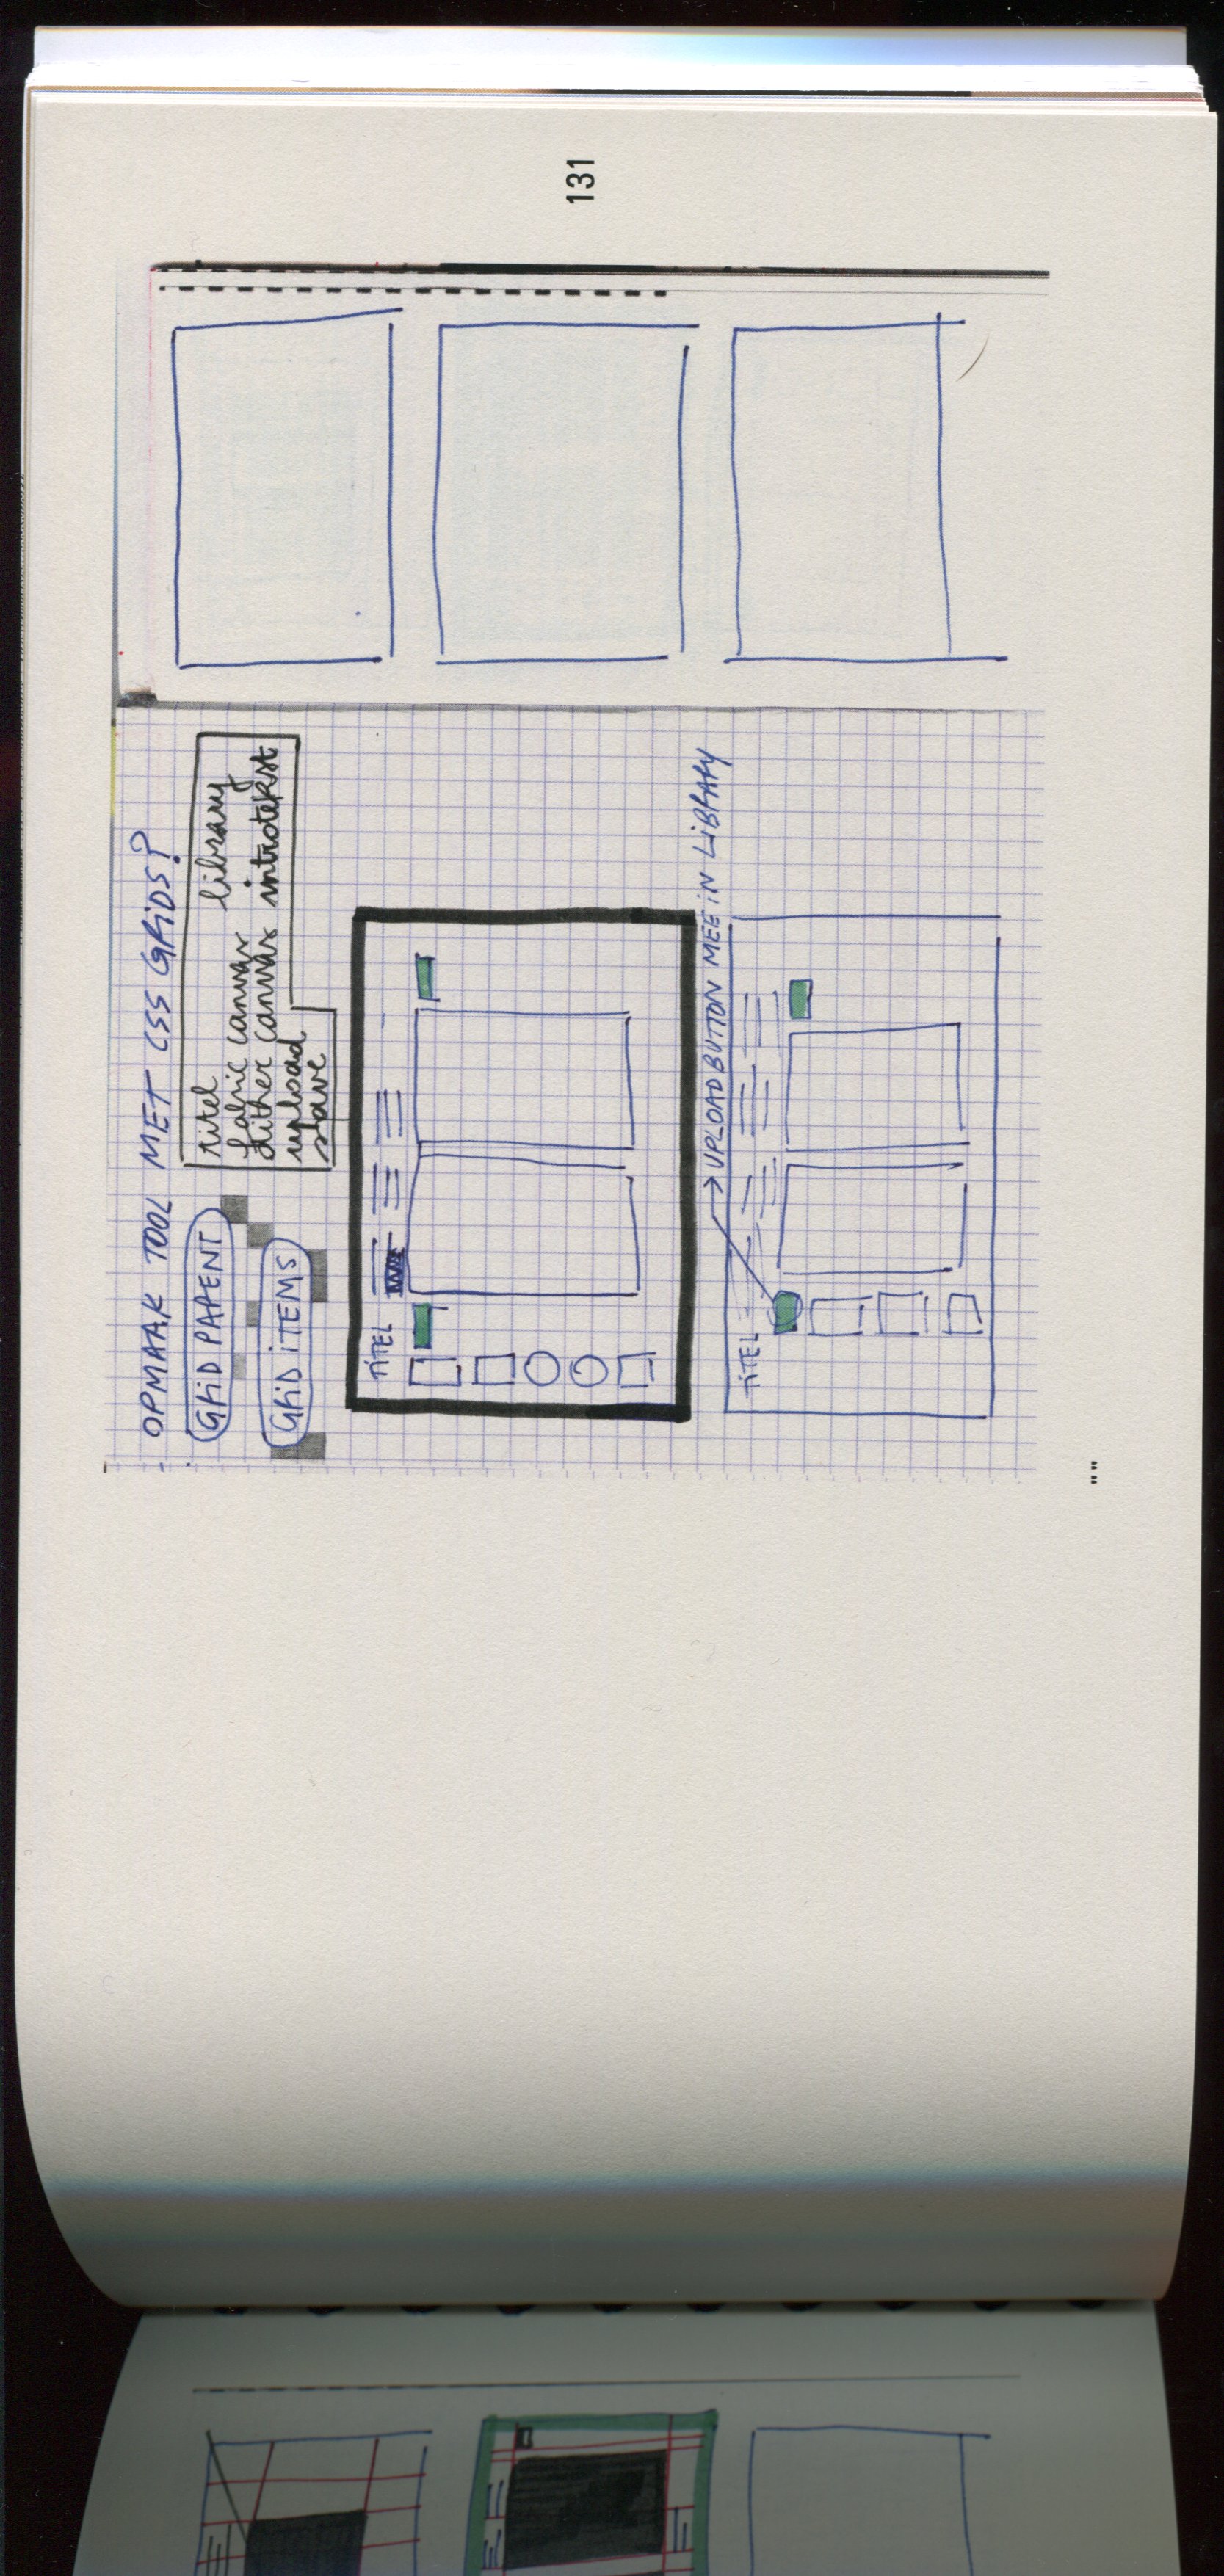 OPMAAK TOOL MET CSS GRIDS?
GRID PARENT
GRID ITEMS
titel
fabric canvas
dither canvas
upload
save
library
introtekst
TITEL
→ UPLOAD BUTTON MEE IN LIBRARY
TITEL
131
""